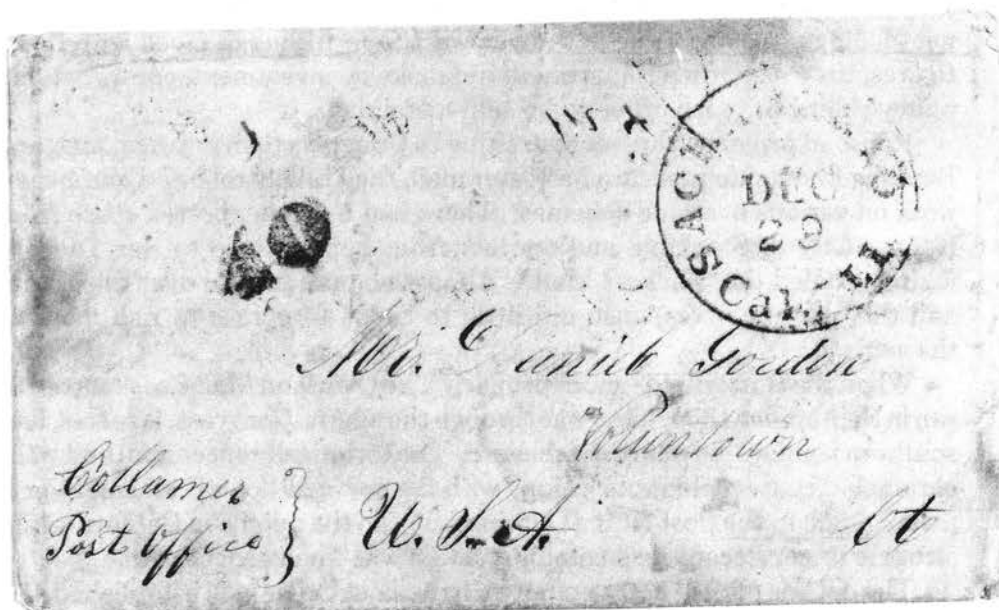 SAC CITY
DEC
29
Cal.
Mr. Daniel Gordon
Voluntown
Collamer
Post Office } U.S.A. Ct